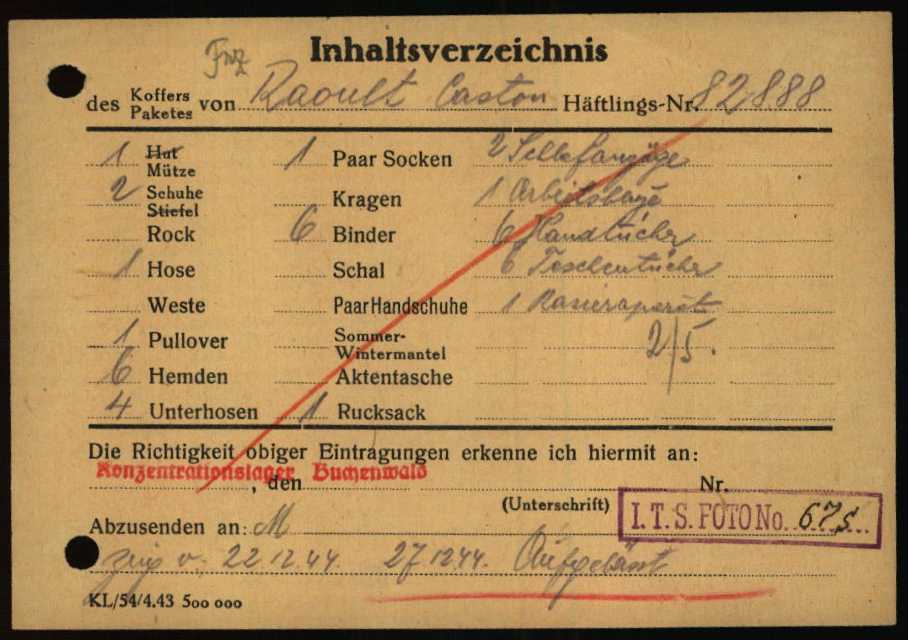 Frz
Inhaltsverzeichnis
des Koffers Paketes von Raoult Gaston Häftlings-Nr. 82888
1 Hut Mütze 1 Paar Socken 2
2 Schuhe Stiefel Kragen 1
Rock 6 Binder 6 Handtücher
1 Hose Schal 6 Taschentücher
Weste Paar Handschuhe 1
1 Pullover Sommer- Wintermantel 2/5.
6 Hemden Aktentasche
4 Unterhosen 1 Rucksack
Die Richtigkeit obiger Eintragungen erkenne ich hiermit an:
Konzentrationslager Buchenwald
, den Nr.
(Unterschrift)
I.T.S. FOTO No. 675
Abzusenden an: M
v. 22.12.44. 27.12.44.
KL/54/4.43 500 000